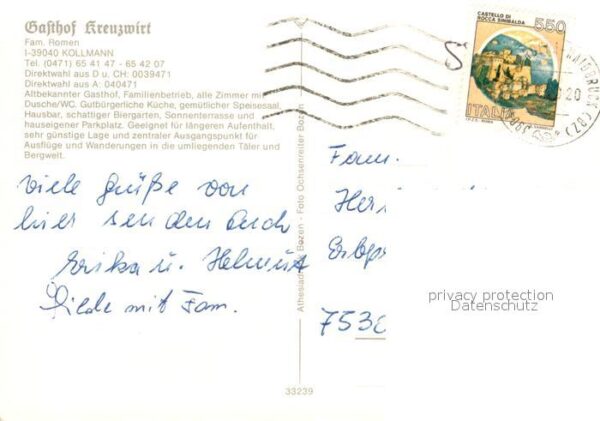 Gasthof Kreuzwirt
Fam. Romen
I-39040 KOLLMANN
Tel. (0471) 65 41 47 - 65 42 07
Direktwahl aus D u. CH: 0039471
Direktwahl aus A: 040471
Altbekannter Gasthof, Familienbetrieb, alle Zimmer mit
Dusche/WC. Gutbürgerliche Küche, gemütlicher Speisesaal,
Hausbar, schattiger Biergarten, Sonnenterrasse und
hauseigener Parkplatz. Geeignet für längeren Aufenthalt,
sehr günstige Lage und zentraler Ausgangspunkt für
Ausflüge und Wanderungen in die umliegenden Täler und
Bergwelt.
viele Grüße von
hier senden Euch
Erika u. Helmut
Gilde mit Fam.
Athesia Bozen - Foto Ochsenreiter Bozen
33239
CASTELLO DI
ROCCA SINIBALDA
550
ITALIA
20
(BZ)
Fam.
Her
Erbpr
753
privacy protection
Datenschutz